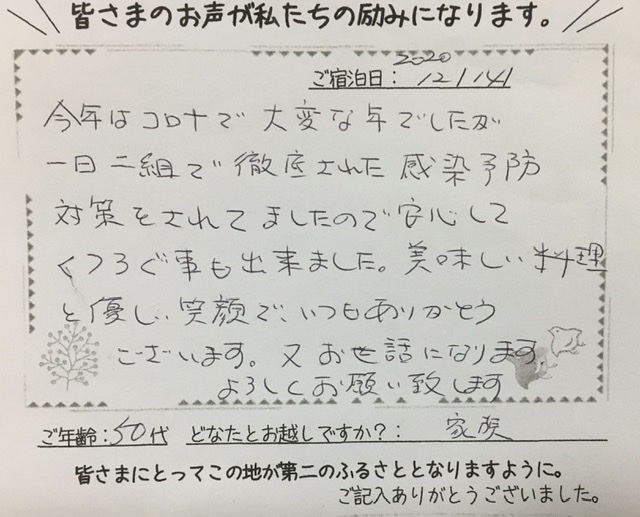 皆さまのお声が私たちの励みになります。
2020
ご宿泊日: 12/14
今年はコロナで大変な年でしたが
一日二組で徹底された感染予防
対策をされてましたので安心して
くつろぐ事も出来ました。美味しい料理
と優しい笑顔で、いつもありがとう
ございます。又お世話になります。
よろしくお願い致します
ご年齢:50代 どなたとお越しですか?: 家族
皆さまにとってこの地が第二のふるさととなりますように。
ご記入ありがとうございました。